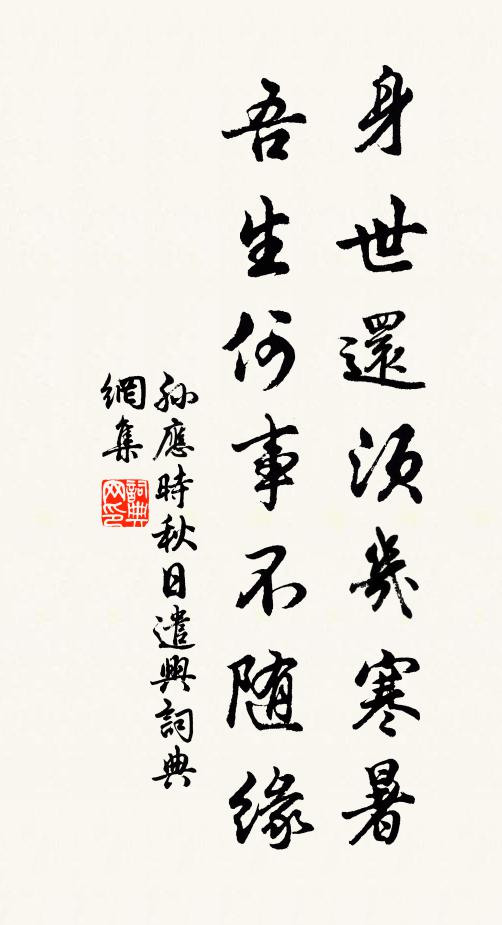 身世還須幾寒暑
吾生何事不随緣
孫應時秋日遣興詞典
網集
詞典
网印